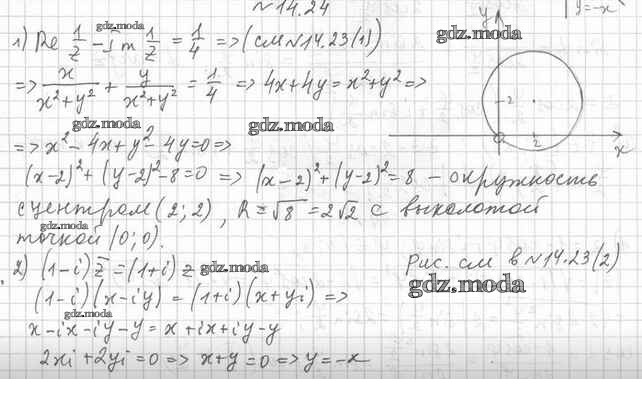 №14.24
y=-x
gdz.moda
1) Re 1/z - Im 1/z = 1/4 => (см №14.23(1))
gdz.moda
y
=> x/(x²+y²) + y/(x²+y²) = 1/4 => 4x+4y=x²+y² =>
2
gdz.moda
gdz.moda
0
2
x
=> x²-4x+y²-4y=0 =>
(x-2)²+(y-2)²-8=0 => (x-2)²+(y-2)²=8 - окружность
с центром (2;2), R=√8=2√2 с выколотой
gdz.moda
точкой (0;0).
Рис. см в №14.23(2)
2) (1-i)z̅=(1+i)z
gdz.moda
gdz.moda
(1-i)(x-iy)=(1+i)(x+yi) =>
gdz.moda
x-ix-iy-y=x+ix+iy-y
2xi+2yi=0 => x+y=0 => y=-x